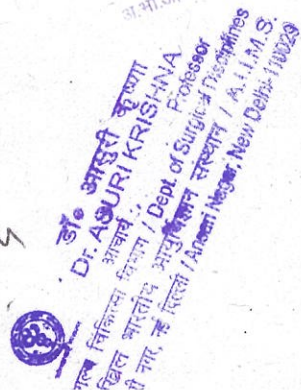 डॉ० आसुरी कृष्णा
Dr. ASURI KRISHNA
आचार्य / Professor
शल्य चिकित्सा विभाग / Dept. of Surgical Disciplines
भारतीय आयुर्विज्ञान संस्थान / A.I.I.M.S.
नगर, नई दिल्ली / Ansari Nagar, New Delhi-110029